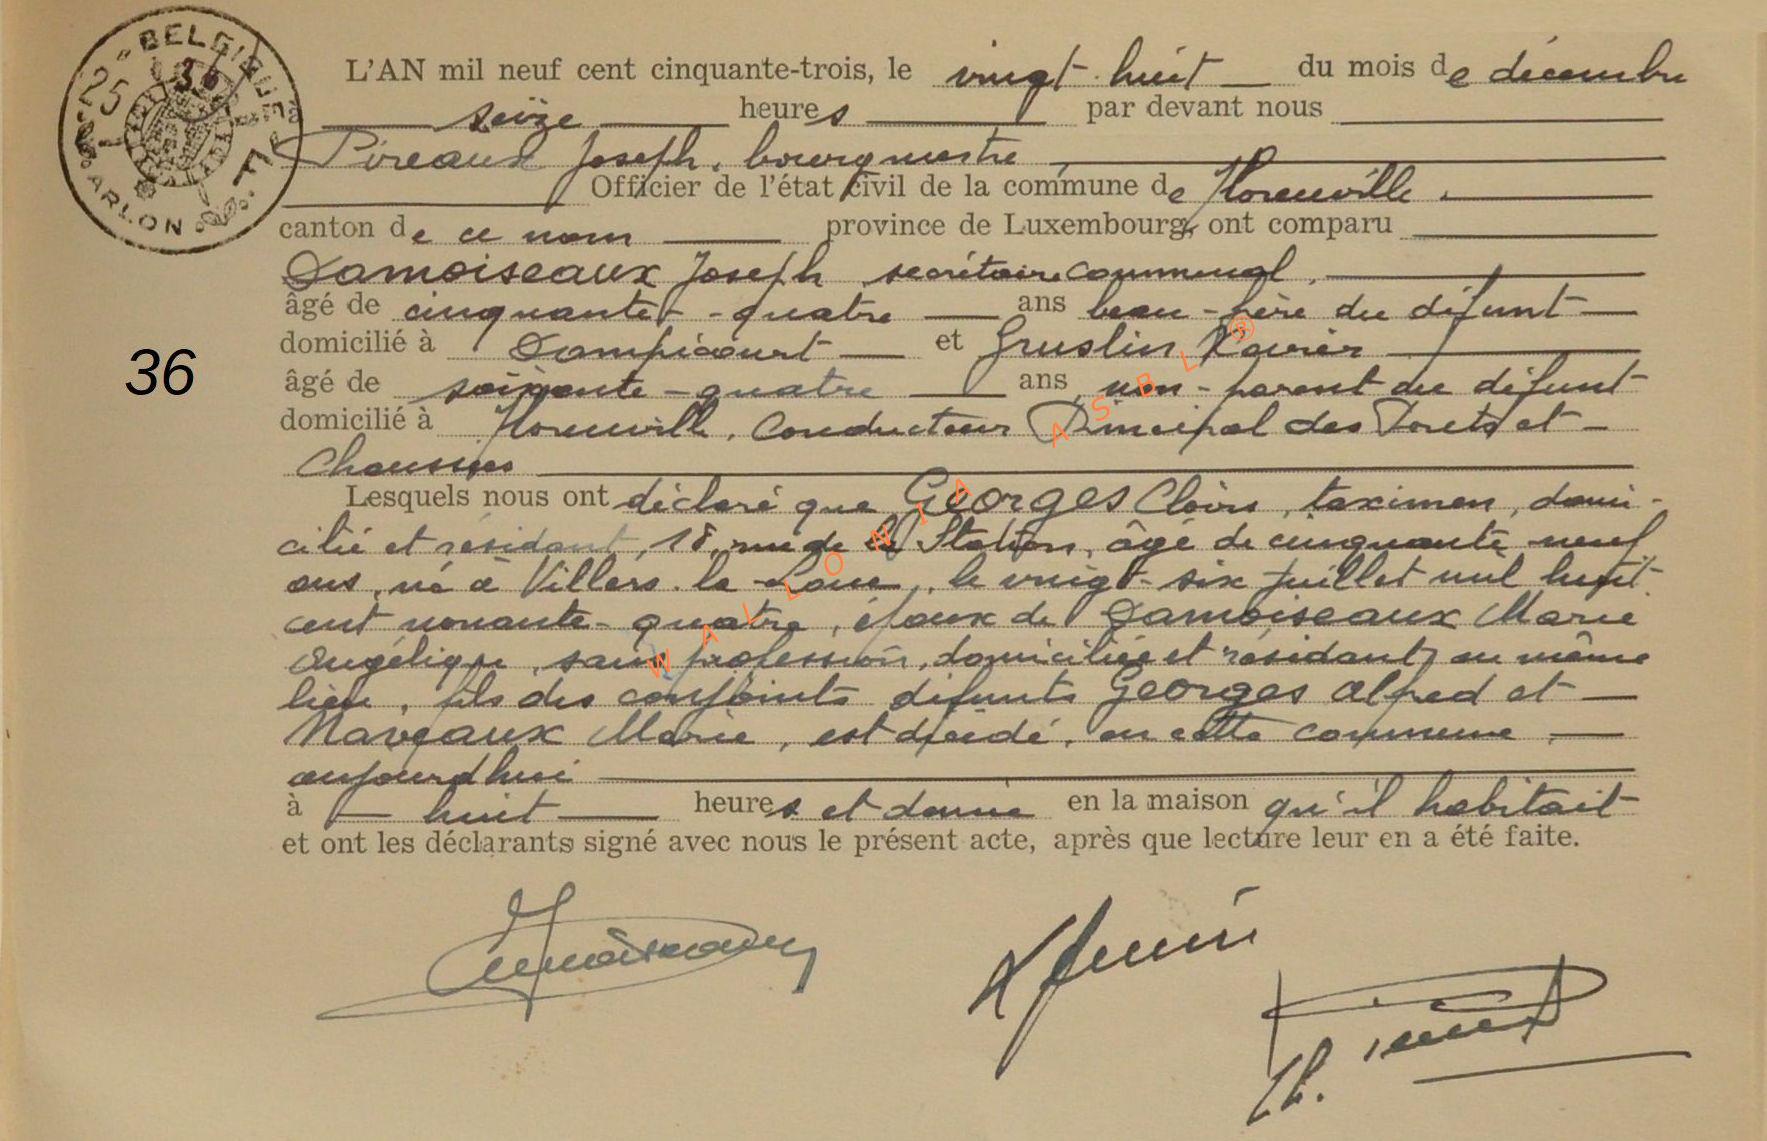 BELGIQUE
25
F
ARLON
L'AN mil neuf cent cinquante-trois, le vingt-huit du mois de décembre
seize heures par devant nous
Pireaux Joseph, bourgmestre,
Officier de l'état civil de la commune de Florenville,
canton de ce nom province de Luxembourg, ont comparu
Damoiseaux Joseph, secrétaire communal,
âgé de cinquante-quatre ans beau-frère du défunt
domicilié à Dampicourt et Gruslin Xavier
36
âgé de soixante-quatre ans, non-parent du défunt
domicilié à Florenville, Conducteur Principal des Ponts et
Chaussées
Lesquels nous ont déclaré que Georges Clovis, taximen, domi-
cilié et résidant, 18, rue de la Station, âgé de cinquante neuf
ans, né à Villers-la-Loue, le vingt-six juillet mil huit
cent nonante-quatre, époux de Damoiseaux Marie
Angélique, sans profession, domiciliée et résidant au même
lieu, fils des conjoints défunts Georges Alfred et
Naveaux Marie, est décédé, en cette commune,
aujourd'hui
à huit heures et demie en la maison qu'il habitait
et ont les déclarants signé avec nous le présent acte, après que lecture leur en a été faite.
WALLONIA ASBL®